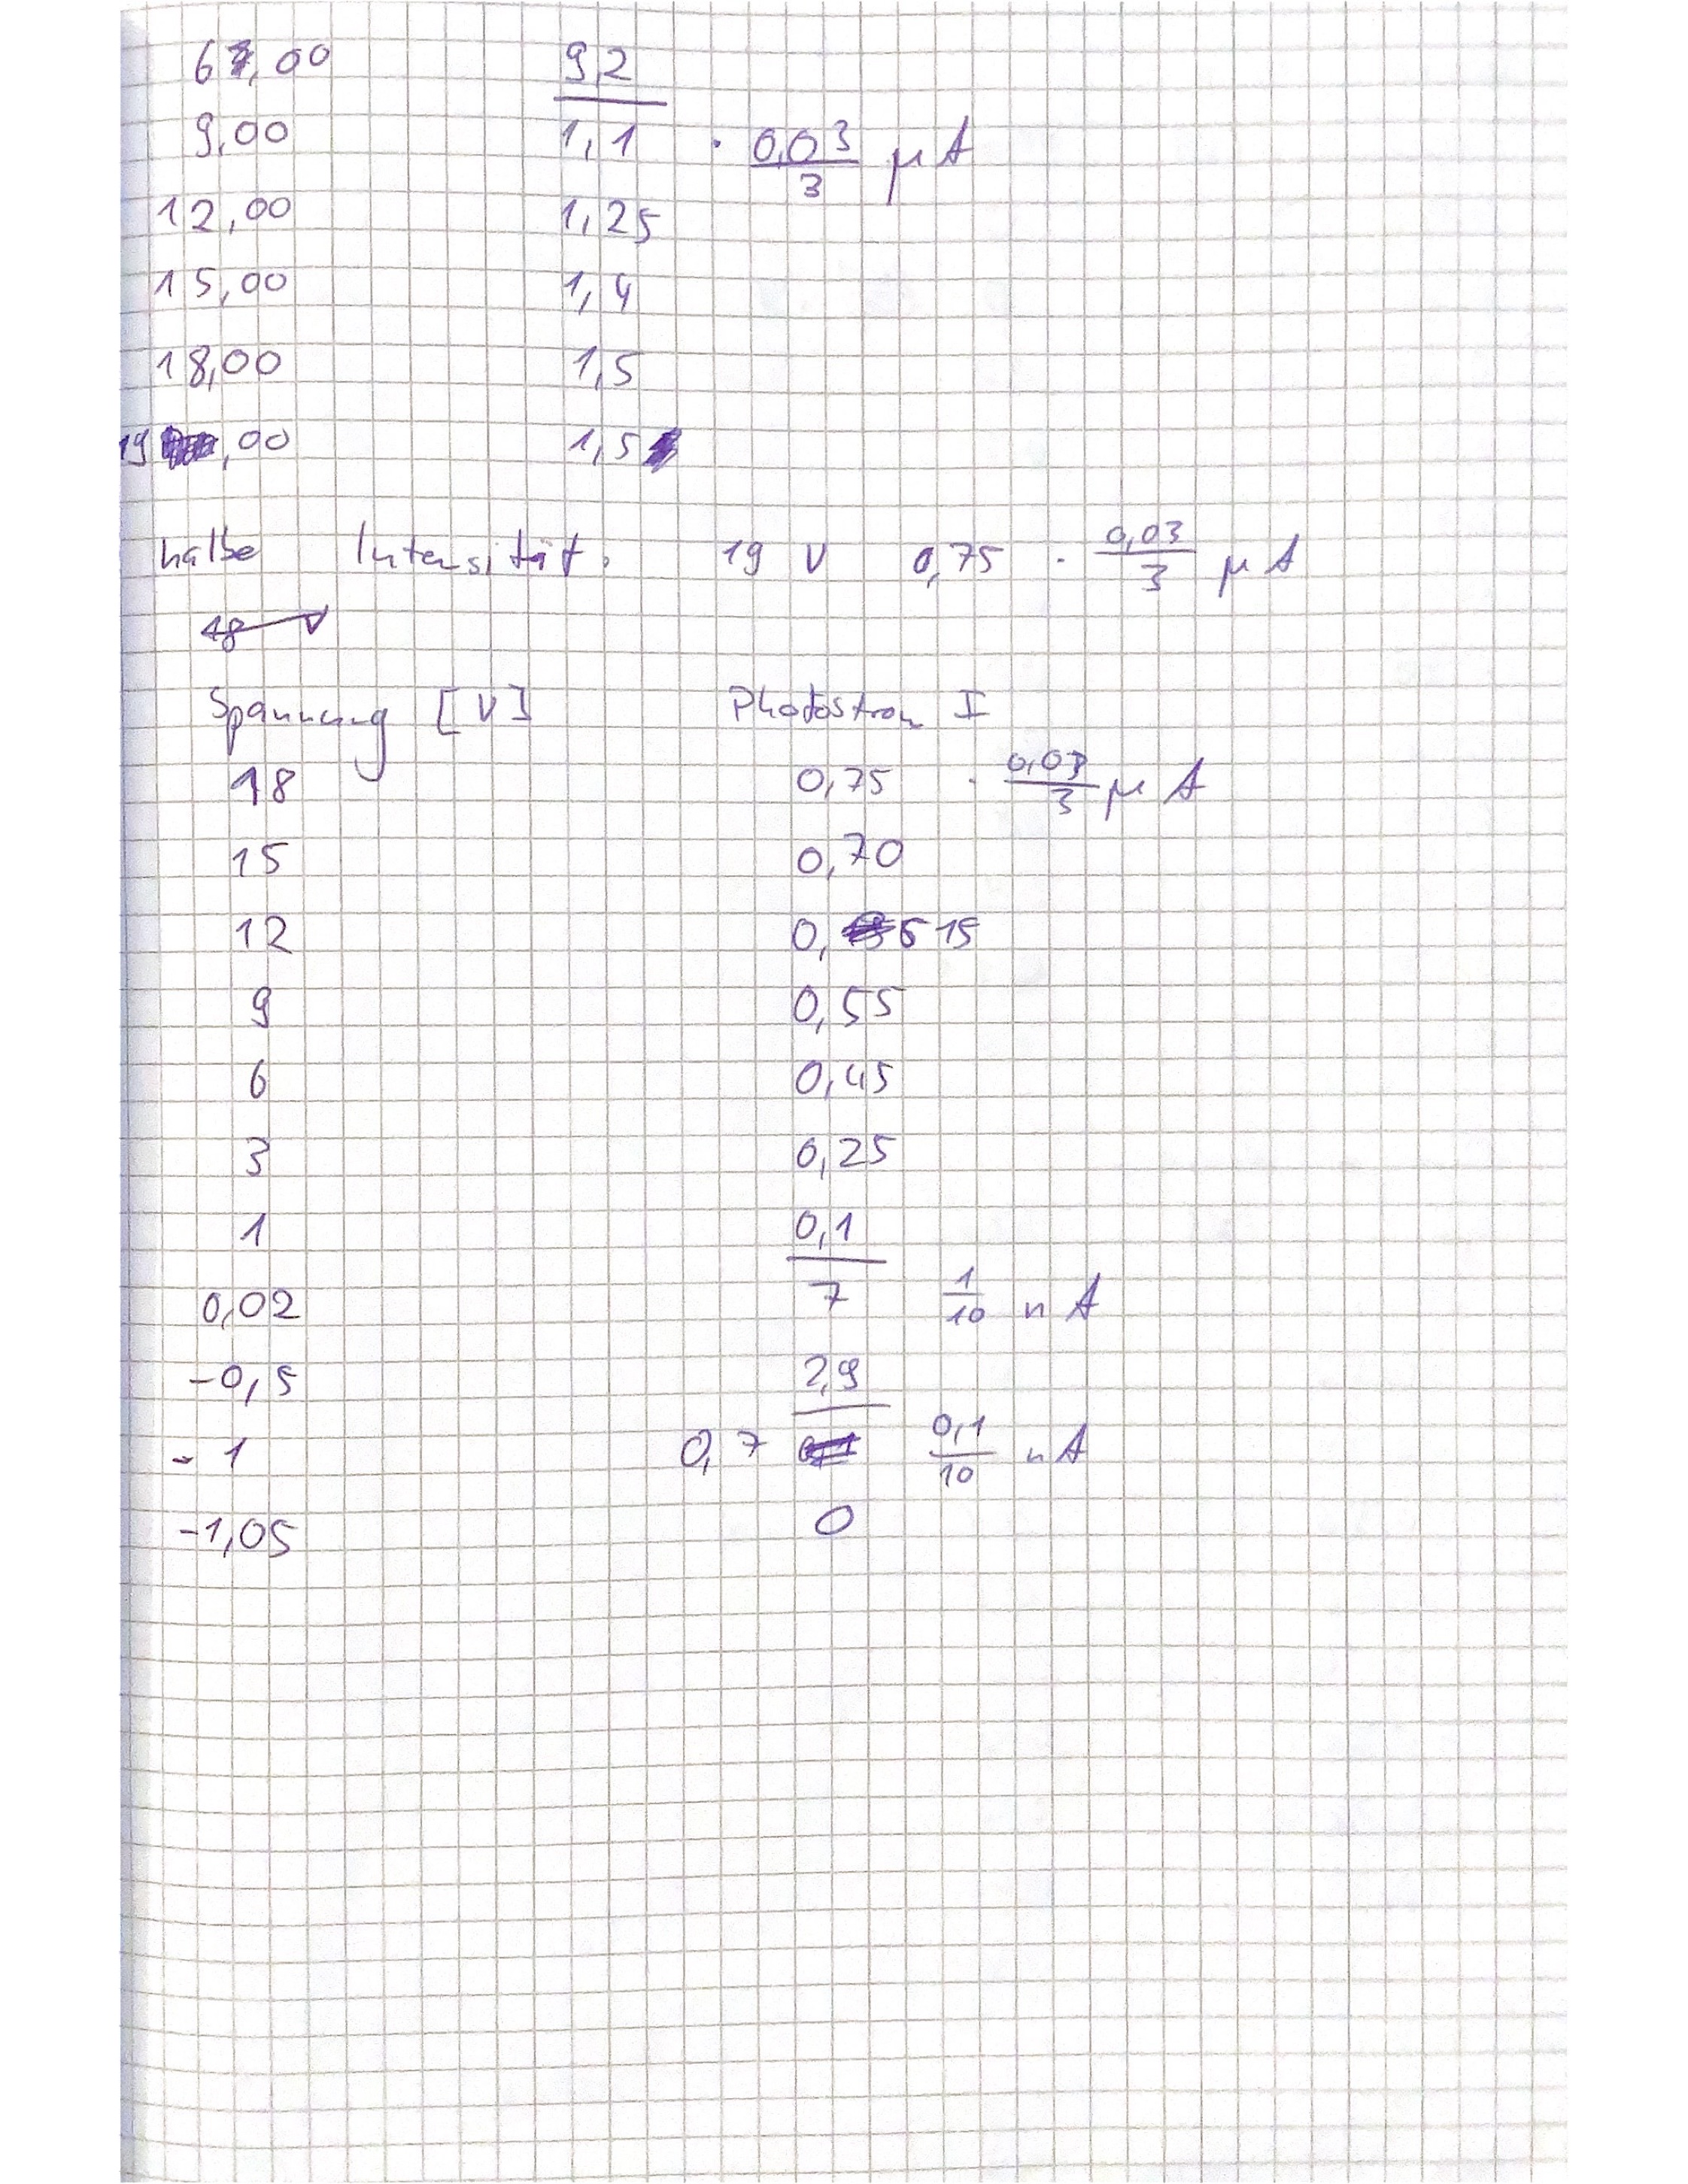 6,00 9,2
9,00 1,1 · 0,03/3 μA
12,00 1,25
15,00 1,4
18,00 1,5
19,00 1,5
halbe Intensität: 19 V 0,75 · 0,03/3 μA
18 V
Spannung [V] Photostrom I
18 0,75 · 0,03/3 μA
15 0,70
12 0,615
9 0,55
6 0,45
3 0,25
1 0,1
0,02 7 1/10 nA
-0,5 2,9
-1 0,7 0,1/10 nA
-1,05 0